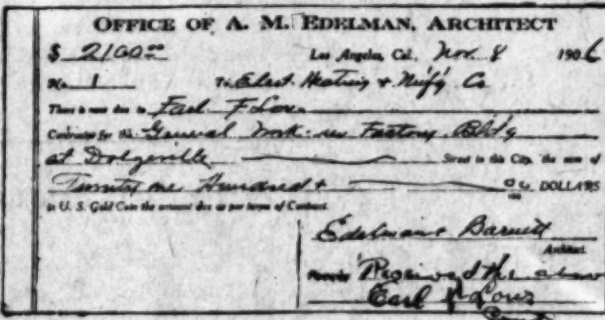 OFFICE OF A. M. EDELMAN, ARCHITECT
$ 2100.00 Los Angeles, Cal. Nov. 8 1906
No. 1 To Elect. Heating & M'f'g Co
There is now due to Earl F Low
Contractor for the General Work Factory Bldg
at Dolgeville Street in this City the sum of
Twenty one Hundred & 00/100 DOLLARS
in U. S. Gold Coin the amount due as per terms of Contract.
Edelman & Barnett
Architect
Received the above
Earl F Low